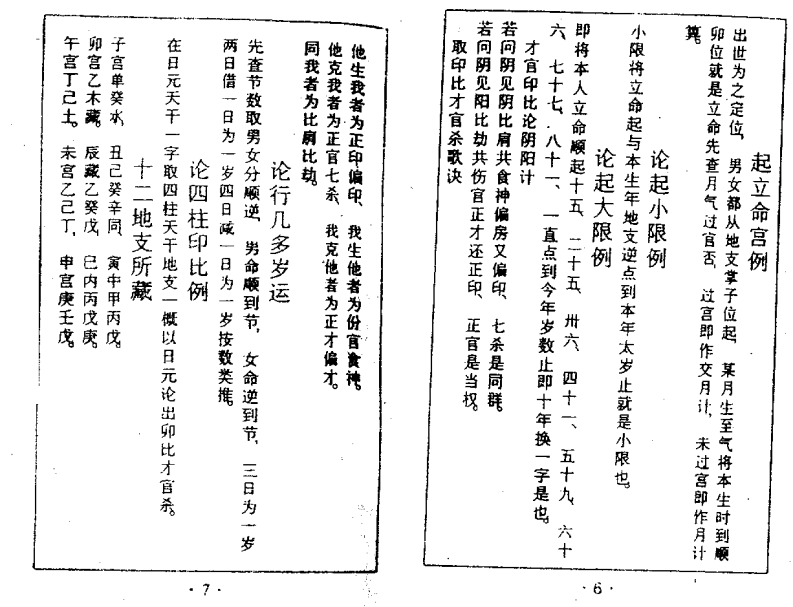 起立命宫例
出世为之定位，男女都从地支掌子位起，某月生至气将本生时到顺
卯位就是立命先查月气过宫否，过宫即作交月计，未过宫即作月计
算。
论起小限例
小限将立命起与本生年地支逆点到本年太岁止就是小限也。
论起大限例
即将本人立命顺起十五、二十五、卅六、四十一、五十九、六十
六、七十七、八十一、一直点到今年岁数止即十年换一字是也。
才官印比论阴阳计
若问阴见阴比肩共食神偏房又偏印、七杀是同群。
若问阴见阳比劫共伤官正才还正印、正官是当权。
取印比才官杀歌诀
·6·
他生我者为正印偏印、我生他者为份官食神。
他克我者为正官七杀、我克他者为正才偏才。
同我者为比肩比劫。
论行几多岁运
先查节数取男女分顺逆，男命顺到节，女命逆到节，三日为一岁
两日借一日为一岁四日减一日为一岁按数类推。
论四柱印比例
在日元天干一字取四柱天干地支一概以日元论出卯比才官杀。
十二地支所藏
子宫单癸水，丑己癸辛同，寅中甲丙戊。
卯宫乙木藏。辰藏乙癸戊，巳内丙戊庚。
午宫丁己土。未宫乙己丁，申宫庚壬戊。
·7·